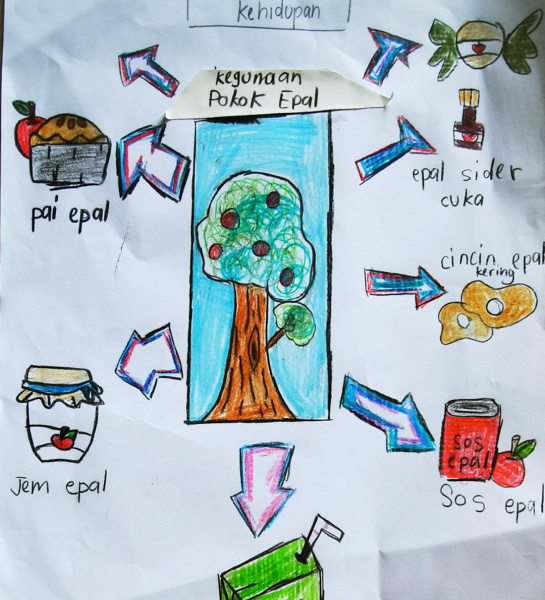 kehidupan
kegunaan
Pokok Epal
epal sider
cuka
pai epal
cincin epal
kering
sos
epal
Sos epal
Jem epal